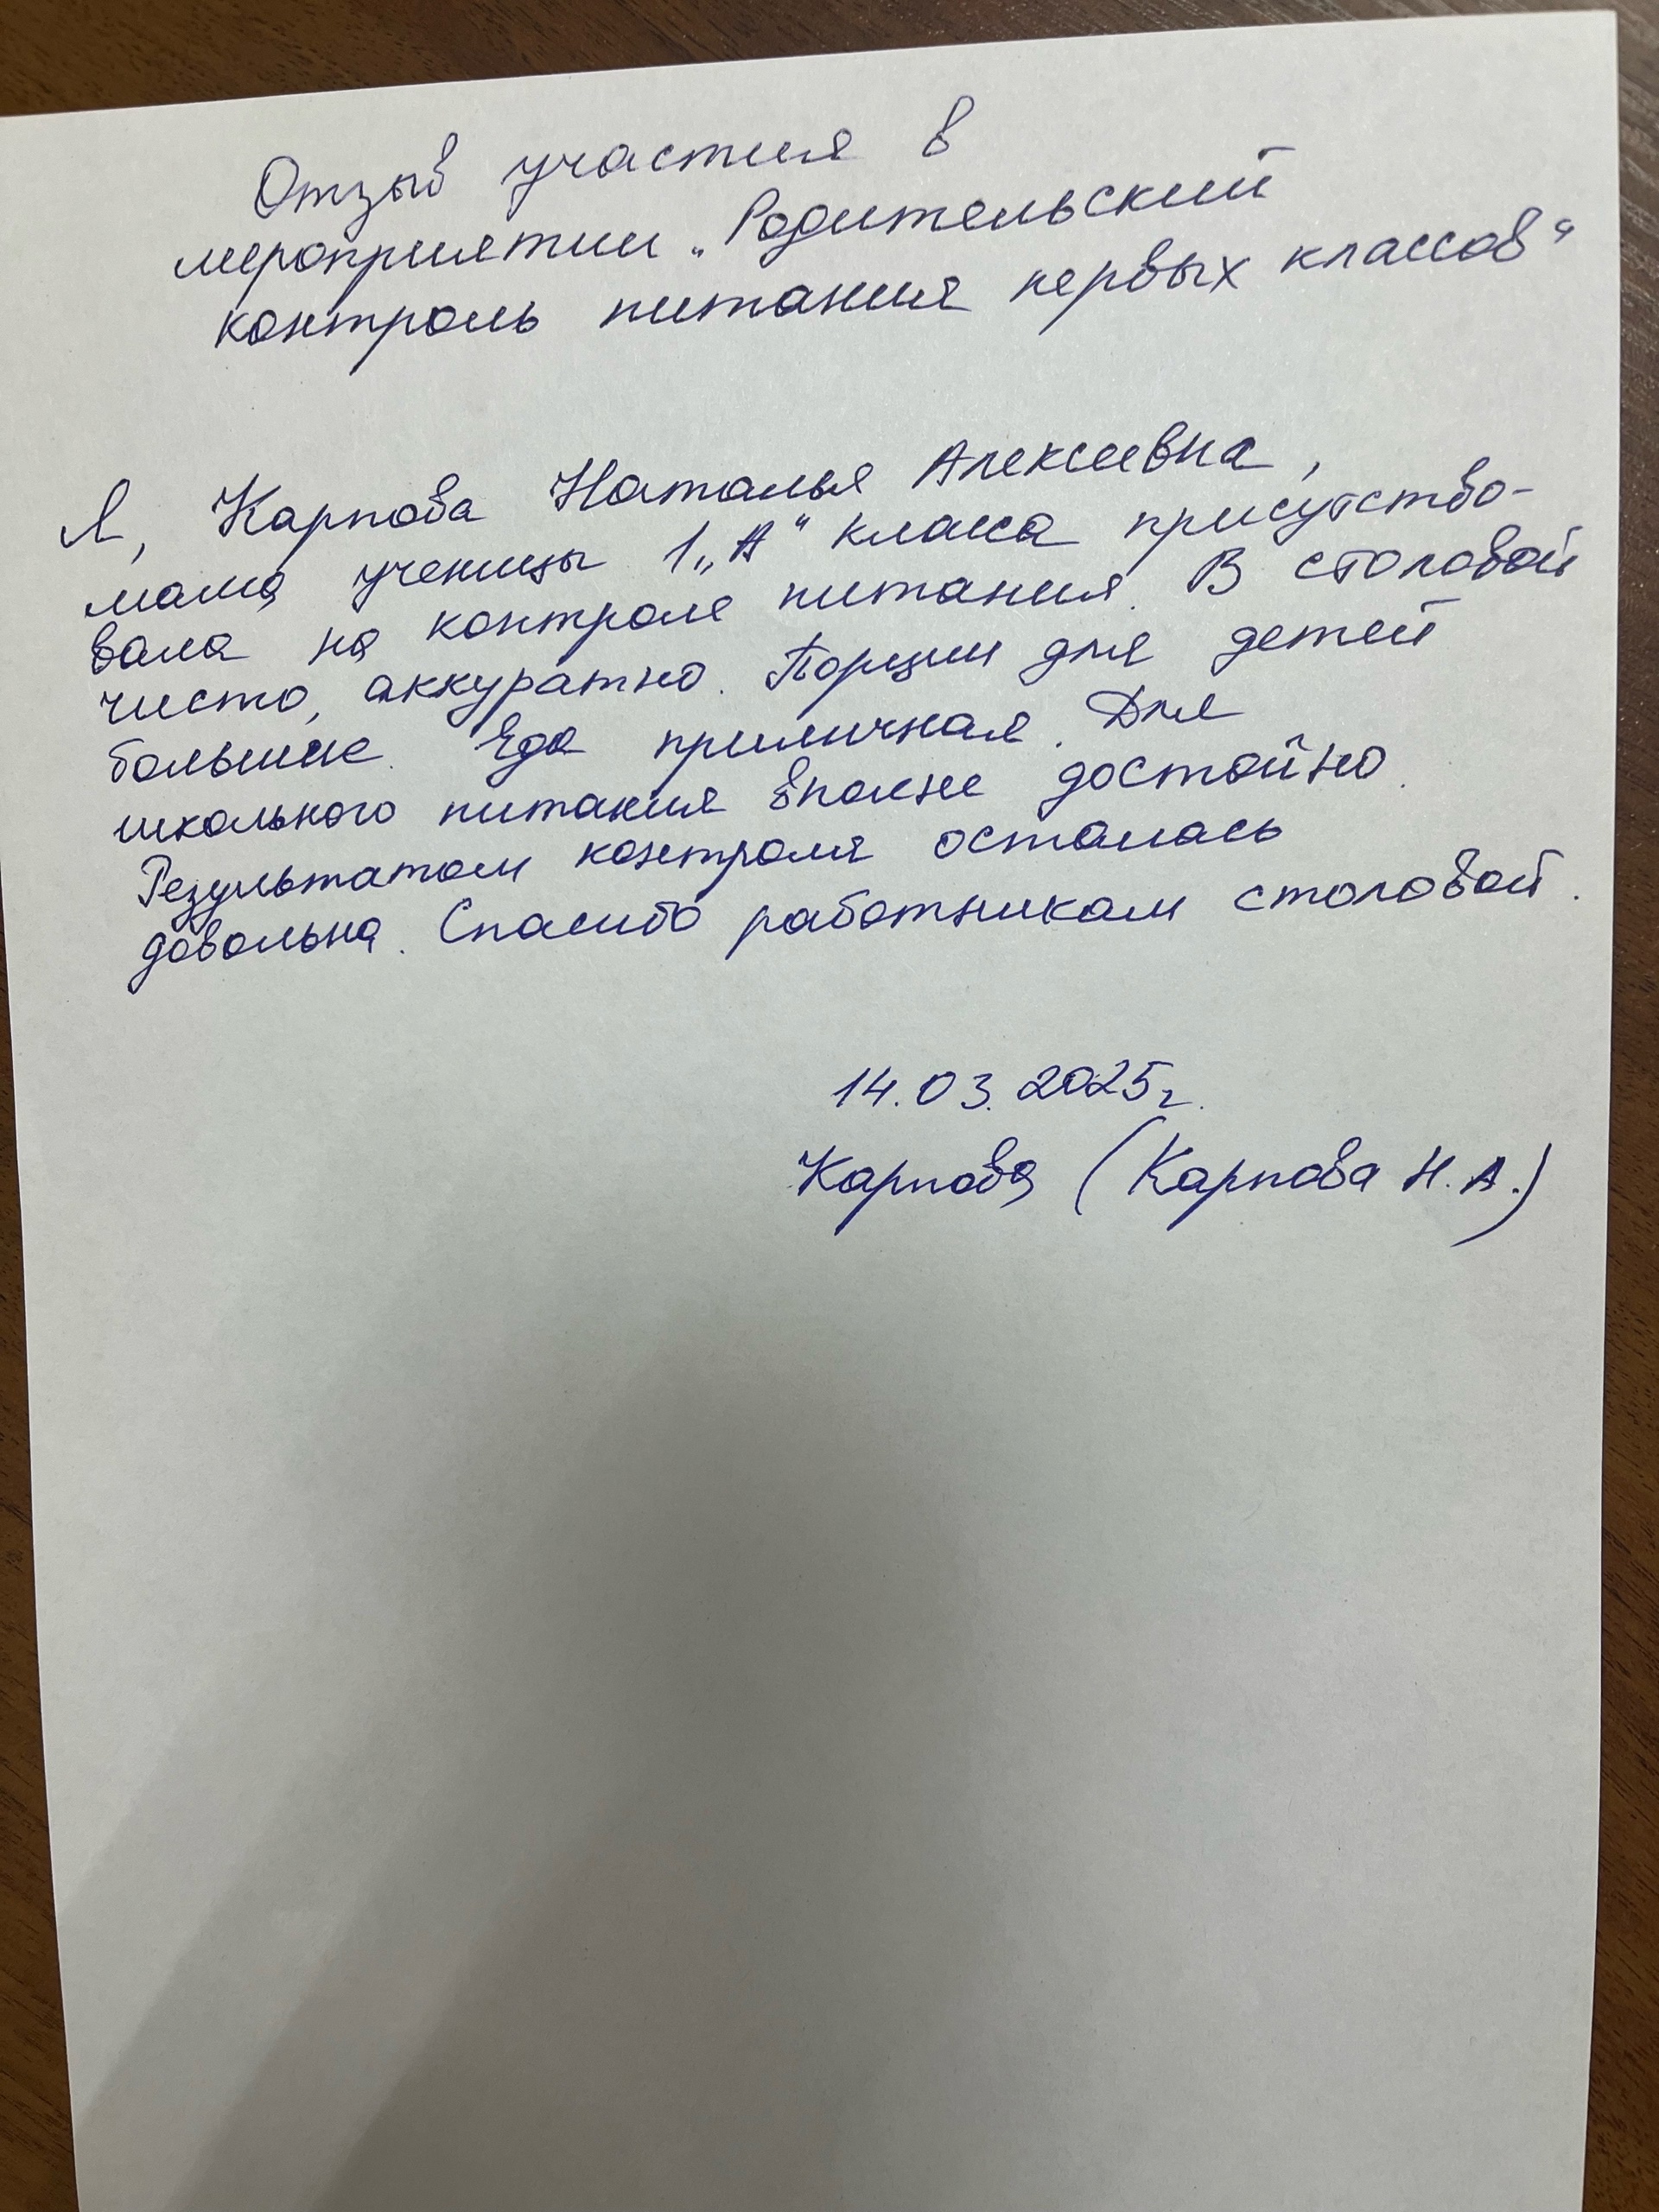 Отзыв участия в
мероприятии „Родительский
контроль питания первых классов“
Я, Карпова Наталья Алексеевна,
мама ученицы 1„А“ класса присутство-
вала на контроле питания. В столовой
чисто, аккуратно. Порции для детей
большие. Еда приличная. Для
школьного питания вполне достойно.
Результатом контроля осталась
довольна. Спасибо работникам столовой.
14.03.2025г.
Карпова (Карпова Н.А.)